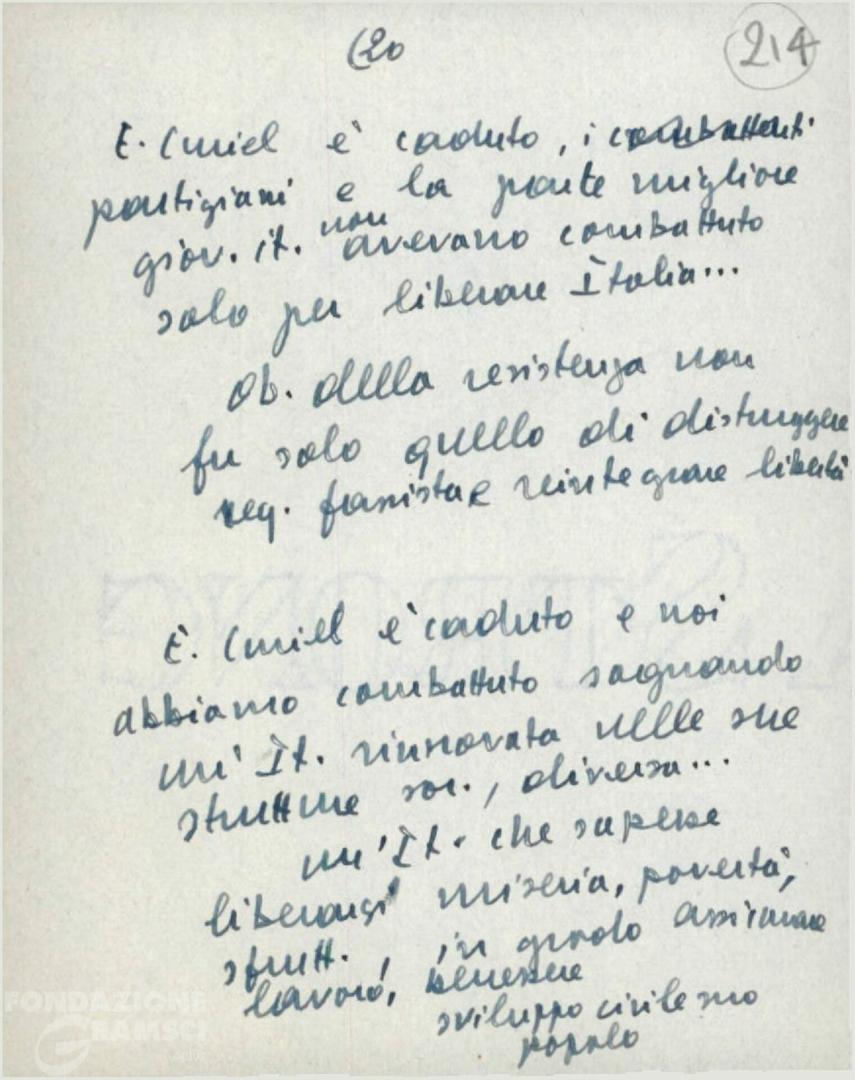 (20
214
E. Curiel è caduto, i combattenti
partigiani e la parte migliore
giov. it. non avevano combattuto
solo per liberare Italia...
Ob. della resistenza non
fu solo quello di distruggere
reg. fascista e reintegrare libertà
E. Curiel è caduto e noi
abbiamo combattuto sognando
un'It. rinnovata nelle sue
strutture soc., diversa...
un'It. che sapesse
liberarsi miseria, povertà,
sfrutt., in grado assicurare
lavoro, benessere
sviluppo civile suo
popolo
FONDAZIONE
GRAMSCI